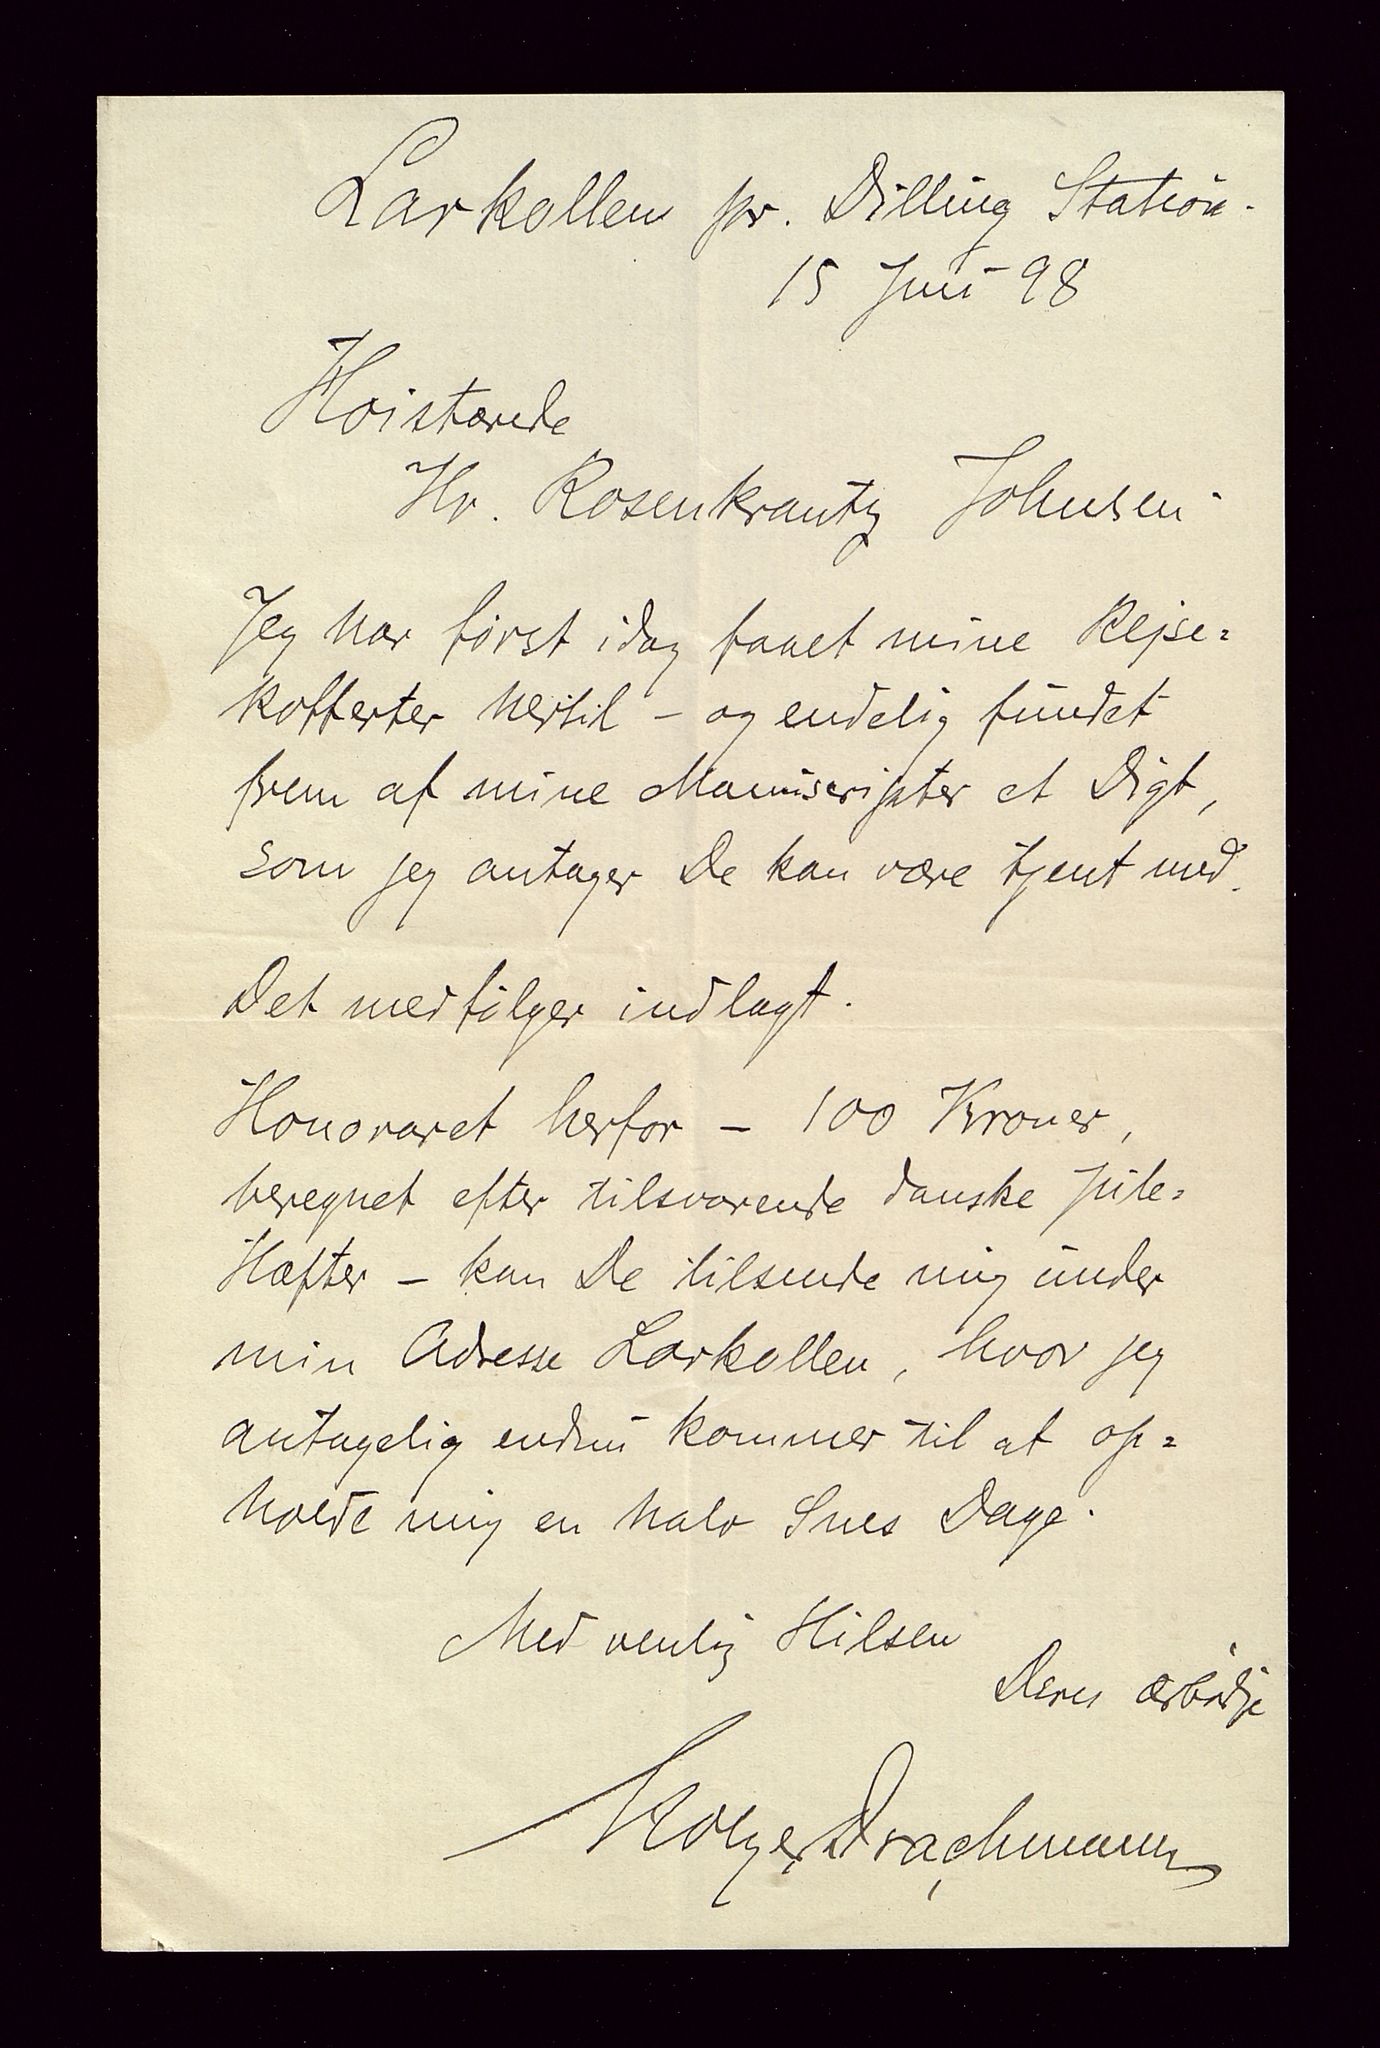 Larkollen pr. Dilling Station.
15 Juni 98
Høistærede
Hr. Rosenkrantz Johnsen.
Jeg har først idag faaet mine Rejse=
kofferter hertil – og endelig fundet
frem af mine Manuscripter et Digt,
som jeg antager De kan være tjent med.
Det medfølger indlagt.
Honoraret herfor – 100 Kroner,
beregnet efter tilsvarende danske Jule=
Hæfter – kan De tilsende mig under
min Adresse Larkollen, hvor jeg
antagelig endnu kommer til at op=
holde mig en halv Snes Dage.
Med venlig Hilsen
Deres ærbødige
Holger Drachmann